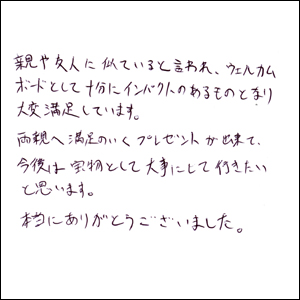 親や友人に似ていると言われ、ウェルカム
ボードとして十分にインパクトのあるものとなり
大変満足しています。
両親へ満足のいくプレゼントが出来て、
今後は宝物として大事にして行きたい
と思います。
本当にありがとうございました。